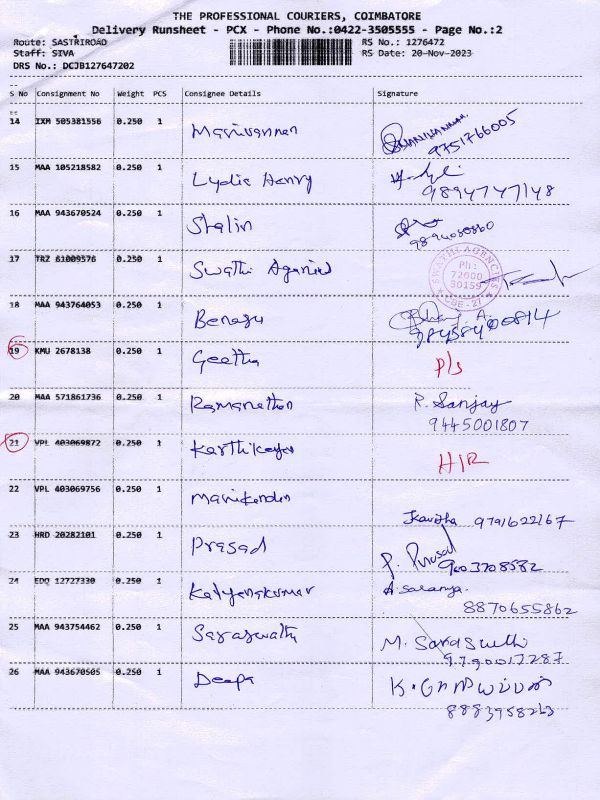 THE PROFESSIONAL COURIERS, COIMBATORE
Delivery Runsheet - PCX - Phone No.:0422-3505555 - Page No.:2
Route: SASTRIROAD RS No.: 1276472
Staff: SIVA RS Date: 20-Nov-2023
DRS No.: DCJB127647202
S No Consignment No Weight PCS Consignee Details Signature
14 IXM 505381556 0.250 1 Manivannan MANIVANNAN
9751766005
15 MAA 105218582 0.250 1 Lydia Henry
9894747148
16 MAA 943670524 0.250 1 Stalin
9894080860
17 TRZ 61009576 0.250 1 Swathi SWATHI AGENCIES
Ph:
72000
30159
CBE - 27
18 MAA 943764053 0.250 1
19 KMU 2678138 0.250 1 Geetha P/s
20 MAA 571861736 0.250 1 Ramanathan R. Sanjay
9445001807
21 VPL 403069872 0.250 1 Karthikeyan
22 VPL 403069756 0.250 1 Manikandan
Kavitha 9791622167
23 HRD 20282101 0.250 1 Prasad P. Prasad
9603708582
24 EDQ 12727330 0.250 1 Kalyanakumar A Saranya.
8870655862
25 MAA 943754462 0.250 1 Saraswathi M. Saraswathi
9790017287
26 MAA 943670505 0.250 1 Deepa
8883958263